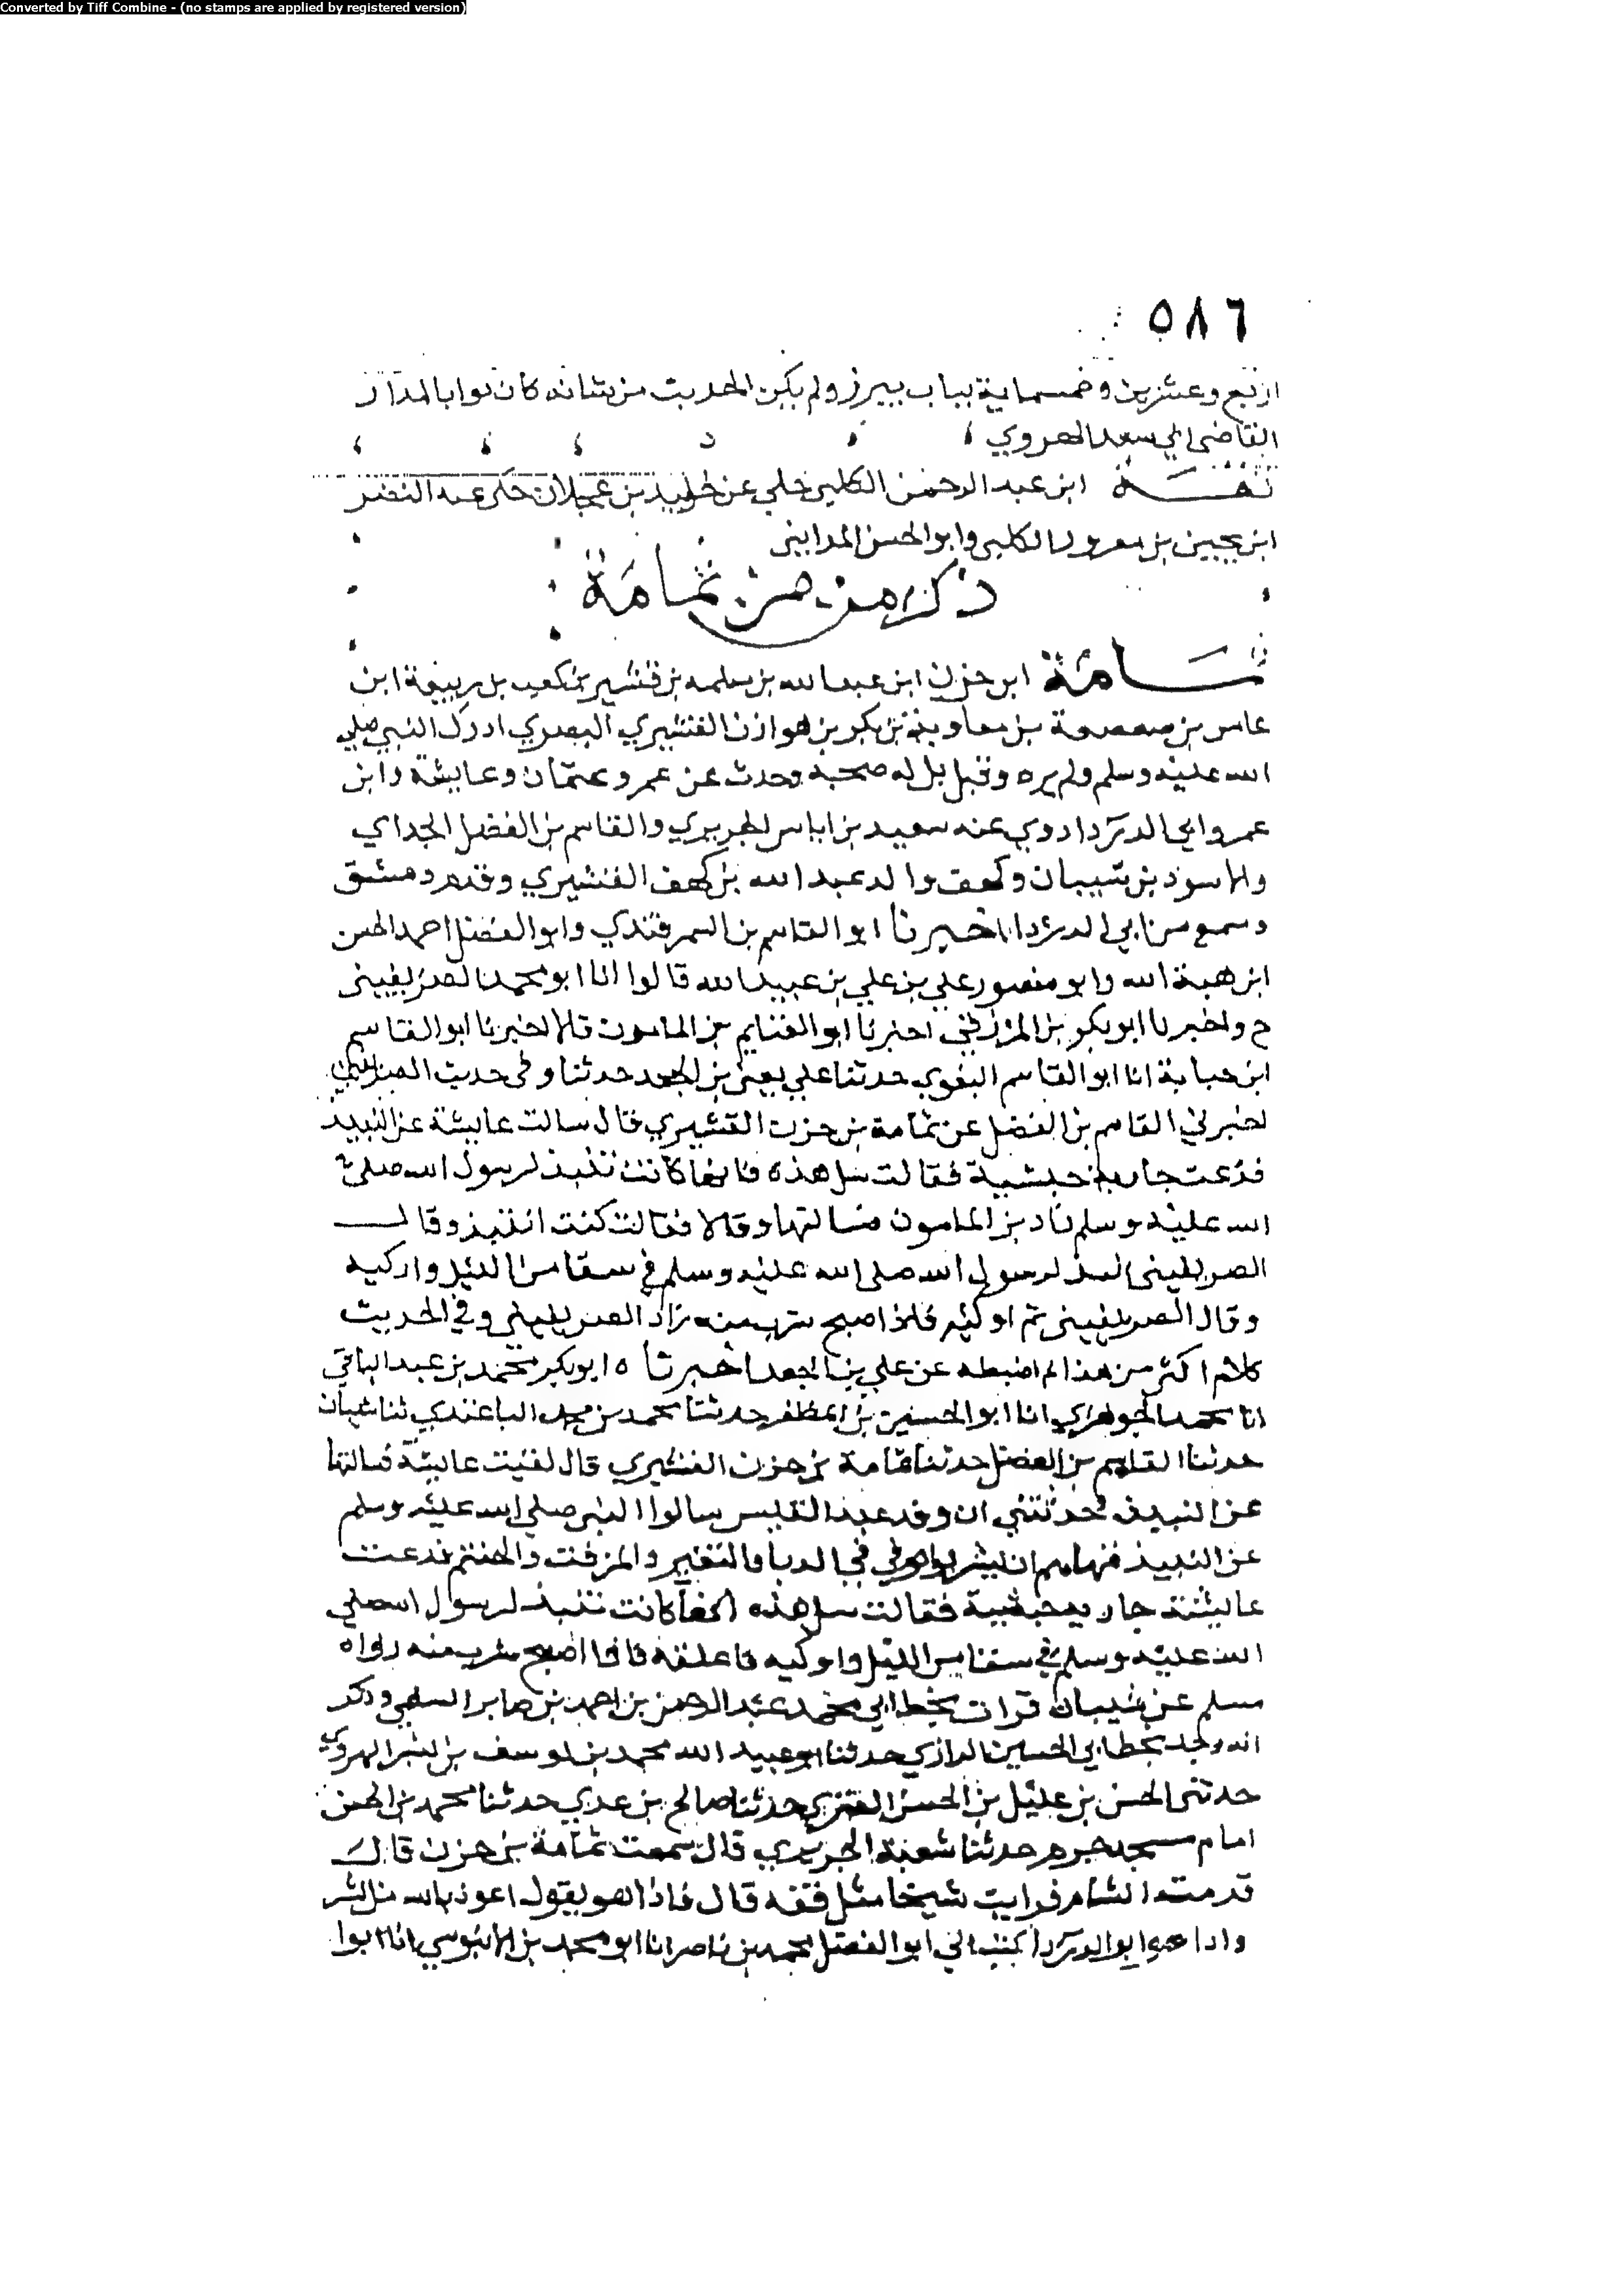 Converted by Tiff Combine - (no stamps are applied by registered version)
٥٨٦
اربع وعشرين وخمسماية بباب بيبرز ولم يكن الحديث من شانه كان بوابا لمدار
القاضى ابي سعد الهروي
ثقة ابن عبد الرحمن الكلبى حلبي عن خليد بن عجلان حكى عنه النضر
ابن يحيى بن معرور الكلبى وابو الحسن المداينى
ذكر من من ثمامة
ثمامة ابن حزن ابن عبد الله بن سلمه بن قشير بن كعب بن ربيعة ابن
عامر بن صعصعة بن معاوية بن بكر بن هوازن القشيري البصري ادرك النبي صلى
الله عليه وسلم ولم يره وقيل بل له صحبة وحدث عن عمر وعثمان وعايشة وابن
عمر وابي الدردا روي عنه سعيد بن اياس الجريري والقاسم بن الفضل الحداي
والاسود بن شيبان وكهف والد عبد الله بن كهف القشيري وقدم دمشق
وسمع من ابي الدردا اخبرنا ابو القاسم بن السمرقندي وابو الفضل احمد الحسن
ابن هبة الله وابو منصور علي بن علي بن عبيد الله قالوا انا ابو محمد الصريفينى
ح واخبرنا ابو بكر بن المزرفي اخبرنا ابو الغنايم بن المامون قالا اخبرنا ابو القاسم
ابن حبابة انا ابو القاسم البغوي حدثنا علي يعنى بن الجعد حدثنا وفى حديث الصريفيني
اخبرني القاسم بن الفضل عن ثمامة بن حزن القشيري قال سالت عايشة عن النبيذ
فدعت جارية حبشية فقالت سل هذه فانها كانت تنبذ لرسول الله صلى
الله عليه وسلم زاد بن المامون فسالتها وقالا فقالت كنت انتبذ وقال
الصريفينى انبذ لرسول الله صلى الله عليه وسلم في سقا من الليل واوكيه
وقال الصريفينى ثم اوكيه فاذا اصبح شرب منه زاد الصريفيني وفي الحديث
كلام اكثر من هذا لم اضبطه عن علي بن الجعد اخبرنا ه ابو بكر محمد بن عبد الباقي
انا محمد الجوهري انا ابو الحسين بن المظفر حدثنا محمد بن محمد الباغندي ثنا شيبان
حدثنا القاسم بن الفضل حدثنا ثمامة بن حزن القشيري قال لقيت عايشة فسالتها
عن النبيذ فحدثتني ان وفد عبد القيس سالوا النبى صلى الله عليه وسلم
عن النبيذ فنهاهم ان يشربوا في الدبا والنقير والمزفت والحنتم فدعت
عايشة جارية حبشية فقالت سل هذه انها كانت تنبذ لرسول الله صلى
الله عليه وسلم في سقا من الليل واوكيه فاعلقه فاذا اصبح شرب منه رواه
مسلم عن شيبان قرات بخط ابي محمد عبد الرحمن بن احمد بن صابر السلمي وذكر
انه وجد بخط ابي الحسين الرازي حدثنا ابو عبيد الله محمد بن يوسف بن بشر الهروي
حدثنى الحسن بن عليل بن الحسن العنزي حدثنا صالح بن عدي حدثنا محمد بن الحسن
امام مسجد جرم حدثنا شعبة الجريري قال سمعت ثمامة بن حزن قال
قدمت الشام فرايت شيخا مثل فقه قال فاذا هو يقول اعوذ بالله من الشر
واذا هو ابو الدردا كتب الي ابو الفضل محمد بن ناصر انا ابو محمد بن الابنوسي انا ابوا